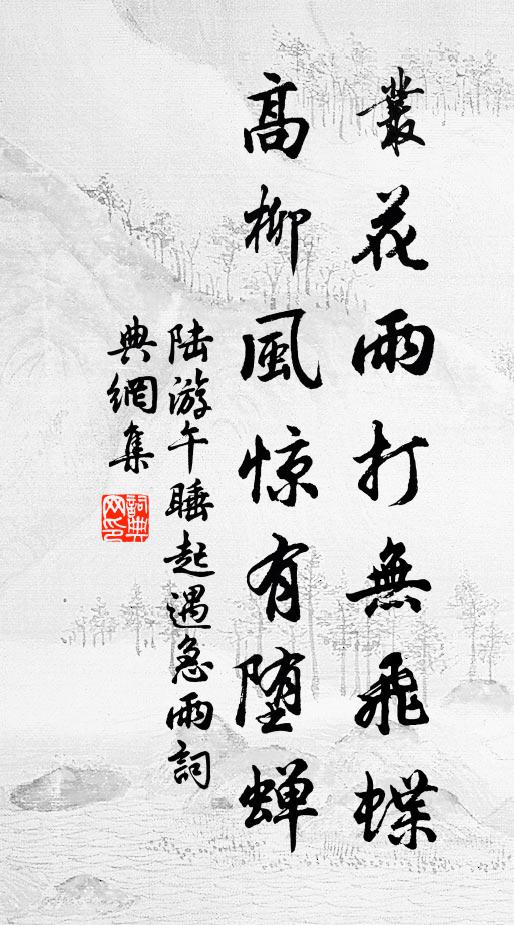 叢花雨打無飛蝶
高柳風惊有堕蝉
陆游午睡起遇急雨詞
典網集
詞典网印